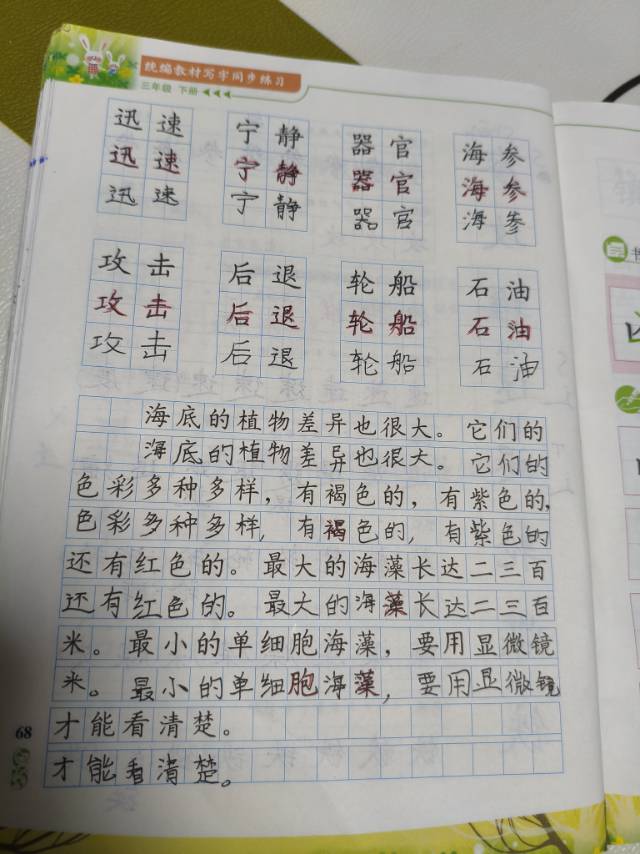 统编教材写字同步练习
三年级 下册
迅速 宁静 器官 海参
迅速 宁静 器官 海参
迅速 宁静 器官 海参
攻击 后退 轮船 石油
攻击 后退 轮船 石油
攻击 后退 轮船 石油
海底的植物差异也很大。它们的
海底的植物差异也很大。它们的
色彩多种多样，有褐色的，有紫色的，
色彩多种多样，有褐色的，有紫色的
还有红色的。最大的海藻长达二三百
还有红色的。最大的海藻长达二三百
米。最小的单细胞海藻，要用显微镜
米。最小的单细胞海藻，要用显微镜
才能看清楚。
才能看清楚。
68